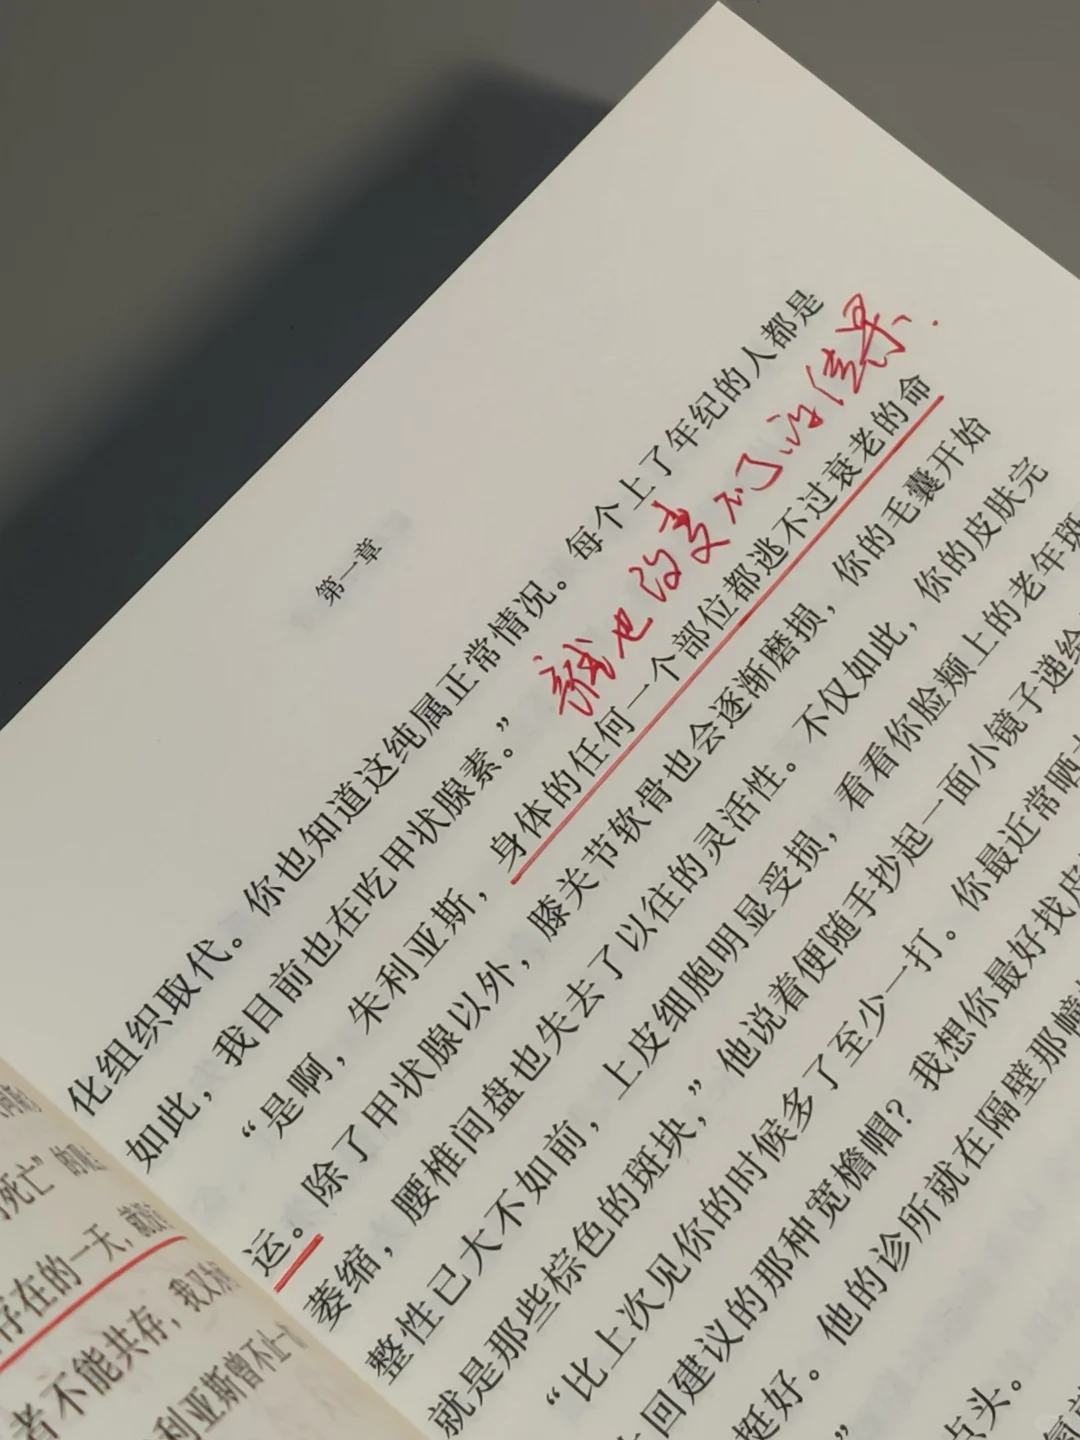 第一章
化组织取代。你也知道这纯属正常情况。每个上了年纪的人都是
如此，我目前也在吃甲状腺素。”
谁也改变不了的结果
“是啊，朱利亚斯，身体的任何一个部位都逃不过衰老的命
运。除了甲状腺以外，膝关节软骨也会逐渐磨损，你的毛囊开始
萎缩，腰椎间盘也失去了以往的灵活性。不仅如此，你的皮肤完
整性已大不如前，上皮细胞明显受损，看看你脸颊上的老年斑
就是那些棕色的斑块，”他说着便随手抄起一面小镜子递给
“比上次见你的时候多了至少一打。你最近常晒
上回建议的那种宽檐帽？我想你最好找皮
挺好。他的诊所就在隔壁那幢
”
点头。
死亡”的
存在的一天，就
者不能共存，我又
利亚斯曾不止